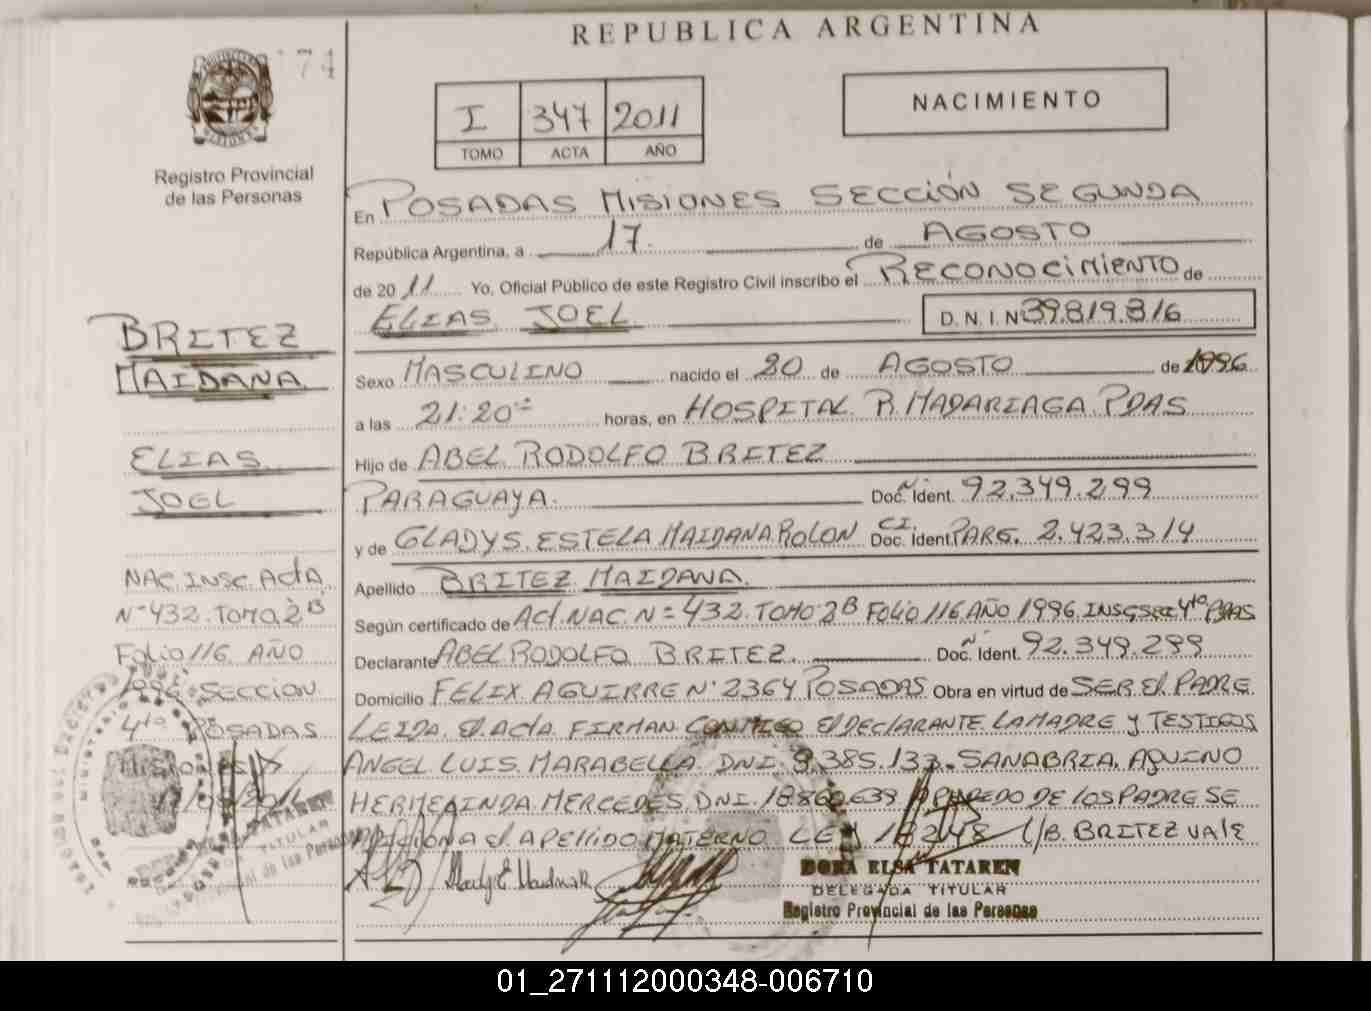 REPUBLICA ARGENTINA
174
I 347 2011
TOMO ACTA AÑO
NACIMIENTO
Registro Provincial
de las Personas
En POSADAS MISIONES SECCIÓN SEGUNDA
República Argentina, a 17. de AGOSTO
de 2011 Yo, Oficial Público de este Registro Civil inscribo el RECONOCIMIENTO de
ELIAS JOEL D. N. I. N 39.819.816
Sexo MASCULINO nacido el 20 de AGOSTO de 1996
a las 21:20 horas, en HOSPITAL R. MADARIAGA PDAS
Hijo de ABEL RODOLFO BRITEZ
PARAGUAYA. Doc. Ident. 92.349.299
y de GLADYS ESTELA MAIDANA ROLON C.I. Doc. Ident PARG. 2.423.314
Apellido BRITEZ MAIDANA.
Según certificado de Act. NAC. N= 432. TOMO 2B FOLIO 116 AÑO 1996. INSC. SEC. 4ta PDAS
Declarante ABEL RODOLFO BRITEZ. Doc. Ident. 92.349.299
Domicilio FELIX AGUIRRE N° 2364 POSADAS Obra en virtud de SER El PADRE
LEIDA El ACTA FIRMAN CONMIGO El DECLARANTE LA MADRE y TESTIGOS
ANGEL LUIS MARABELLA DNI 8.385.133. SANABRIA AQUINO
HERMELINDA MERCEDES DNI. 18.860.639 A PEDIDO DE LOS PADRE SE
ADICIONA El APELLIDO MATERNO LEY 18248 L/B. BRITEZ VALE
BRITEZ
MAIDANA
ELIAS
JOEL
NAC. INSC. ACTA
N° 432. TOMO 2B
FOLIO 116 AÑO
1996 SECCION
4ta POSADAS
MISIONES
DORA ELSA TATAREN
DELEGADA TITULAR
Registro Provincial de las Personas
01_271112000348-006710